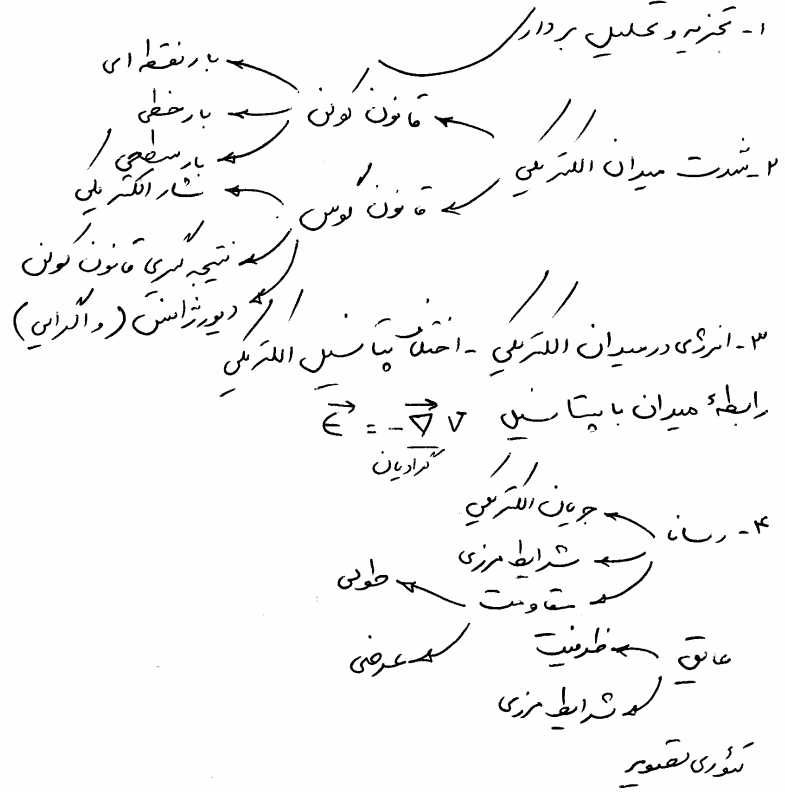 ۱- تجزیه و تحلیل برداری
۲- شدت میدان الکتریکی
قانون کولن
بار نقطه ای
بار خطی
بار سطحی
قانون گوس
شار الکتریکی
نتیجه گیری قانون کولن
دیورژانس (واگرایی)
۳- انرژی در میدان الکتریکی - اختلاف پتانسیل الکتریکی
رابطهٔ میدان با پتانسیل E = -∇V
گرادیان
۴- رسانا
جریان الکتریکی
شرایط مرزی
مقاومت
طولی
عرضی
عایق
ظرفیت
شرایط مرزی
تئوری تصویر